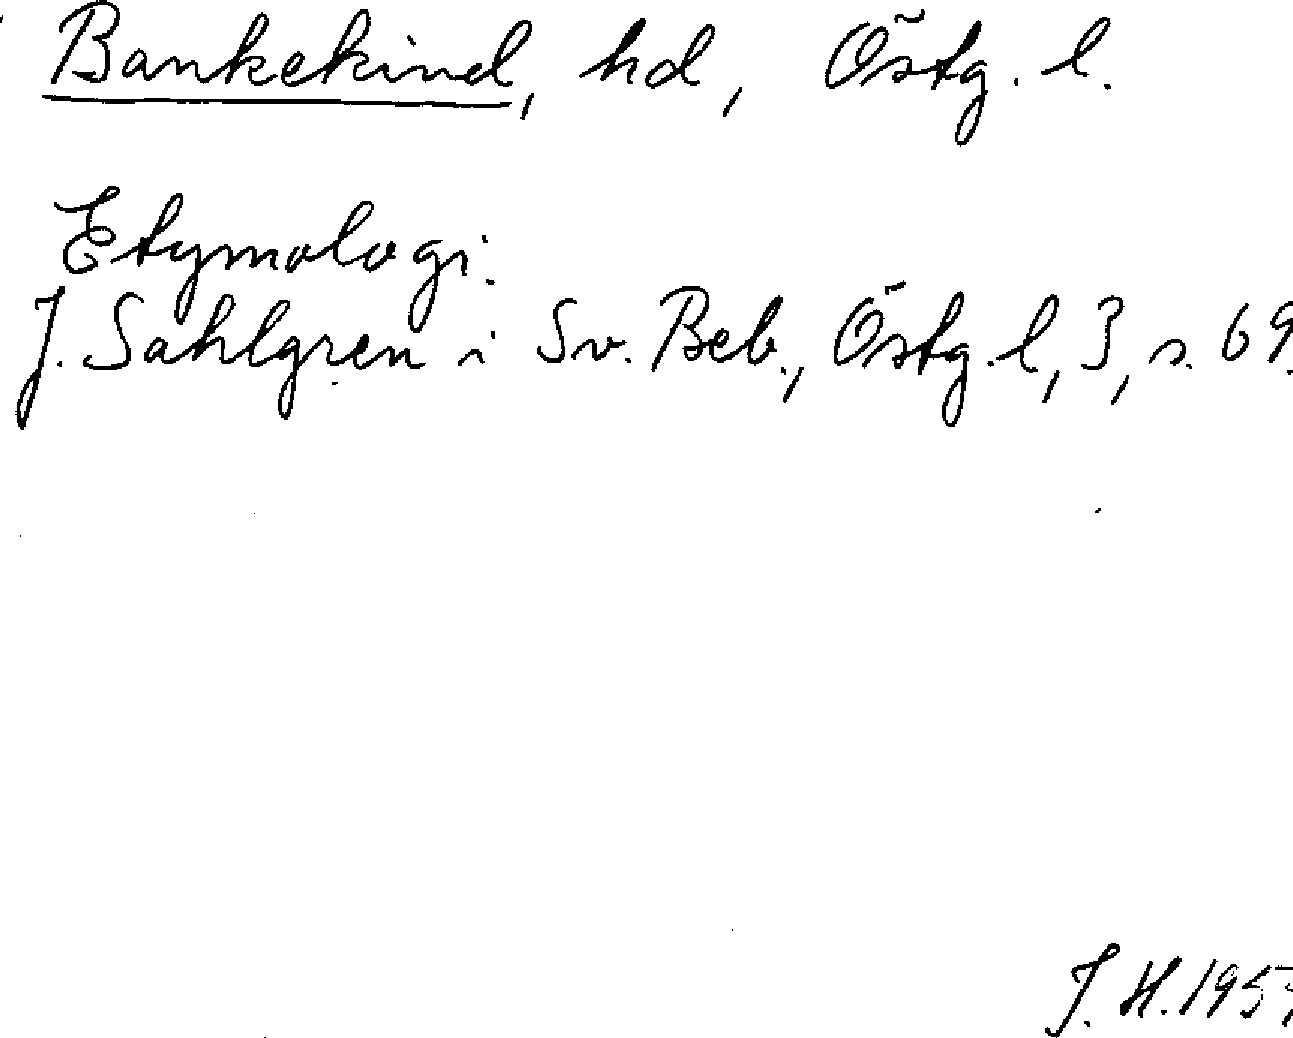 Bankekind, hd, Östg. l.
Etymologi.
J. Sahlgren i Sv. Beb., Östg. l, 3, s. 69.
J. H. 195